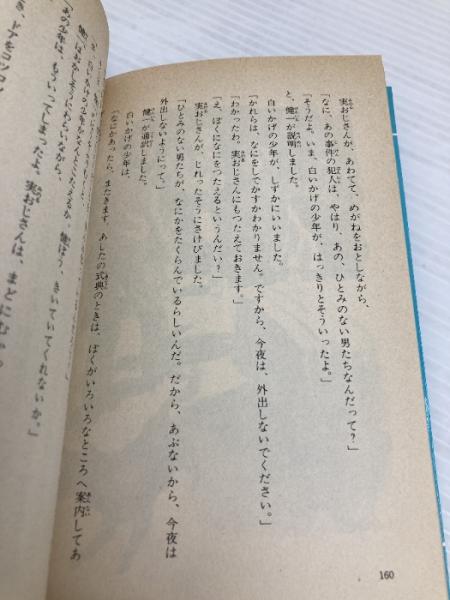 実おじさんが、あわてて、めがねをおとしながら、
「なに、あの事件の犯人は、やはり、あの、ひとみのない男たちなんだって?」
「そうだよ。いま、白いかげの少年が、はっきりとそういったよ。」
と、健一が説明しました。
白いかげの少年が、しずかにいいました。
「かれらは、なにをしでかすかわかりません。ですから、今夜は、外出しないでください。」
「わかったわ。実おじさんにもつたえておきます。」
「え、ぼくになにをつたえるというんだい?」
実おじさんが、じれったそうにさけびました。
「ひとみのない男たちが、なにかをたくらんでいるらしいんだ。だから、あぶないから、今夜は
外出しないようにって。」
健一が通訳しました。
白いかげの少年は、
「なにかあったら、またきます。あしたの式典のときは、ぼくがいろいろなところへ案内してあ
160
健一はおかしそうにわらいながら、
「あの少年は、もういってしまったよ。実おじさんは、まどにむかっ
ドアをコンコン